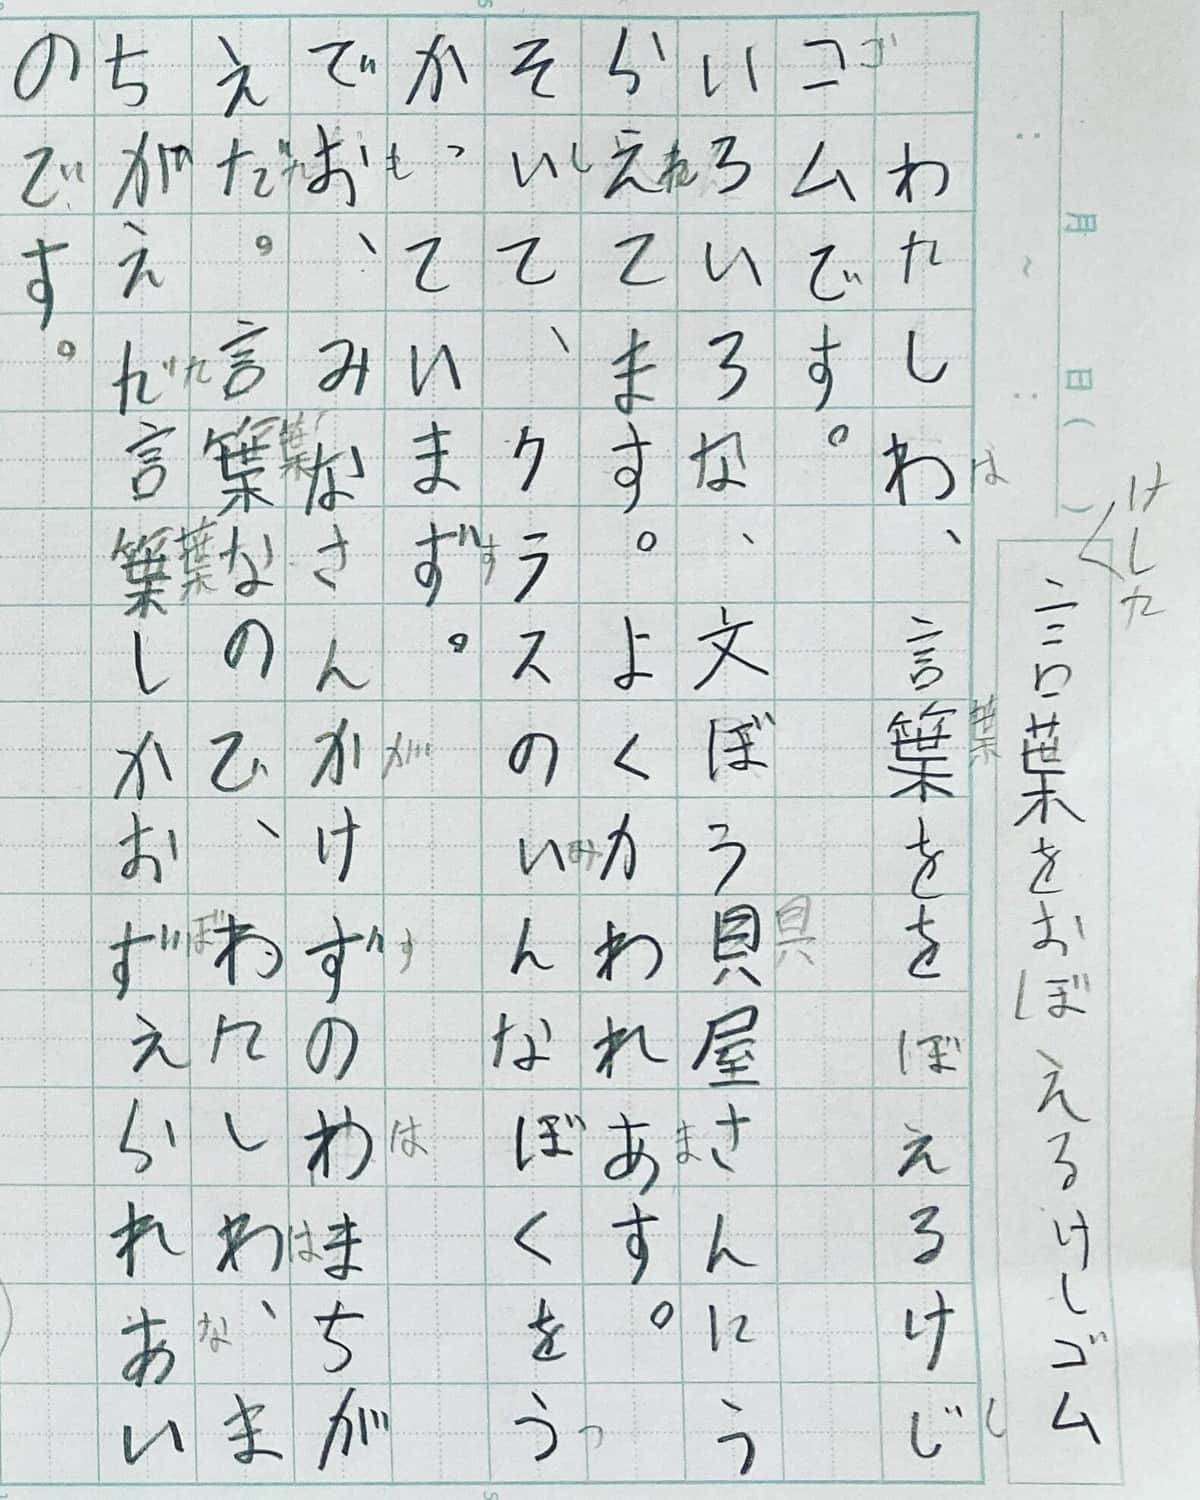 月　日(　)
けした
言葉をおぼえるけしゴム
は　葉　し
わたしわ、言葉ををぼえるけじ
ゴ
コムです。
具
いろいろな、文ぼう貝屋さんにう
れ　ま
らえてます。よくかわれあす。
し　み　っ
そいて、クラスのいんなぼくをう
す
かっていまず。
も　が　す　は
でお、みなさんかけずのわまちが
た　葉　は
えだ。言葉なので、わたしわ、ま
た　葉　ぼ　な
ちがえだ言葉しかおずえられあい
のです。